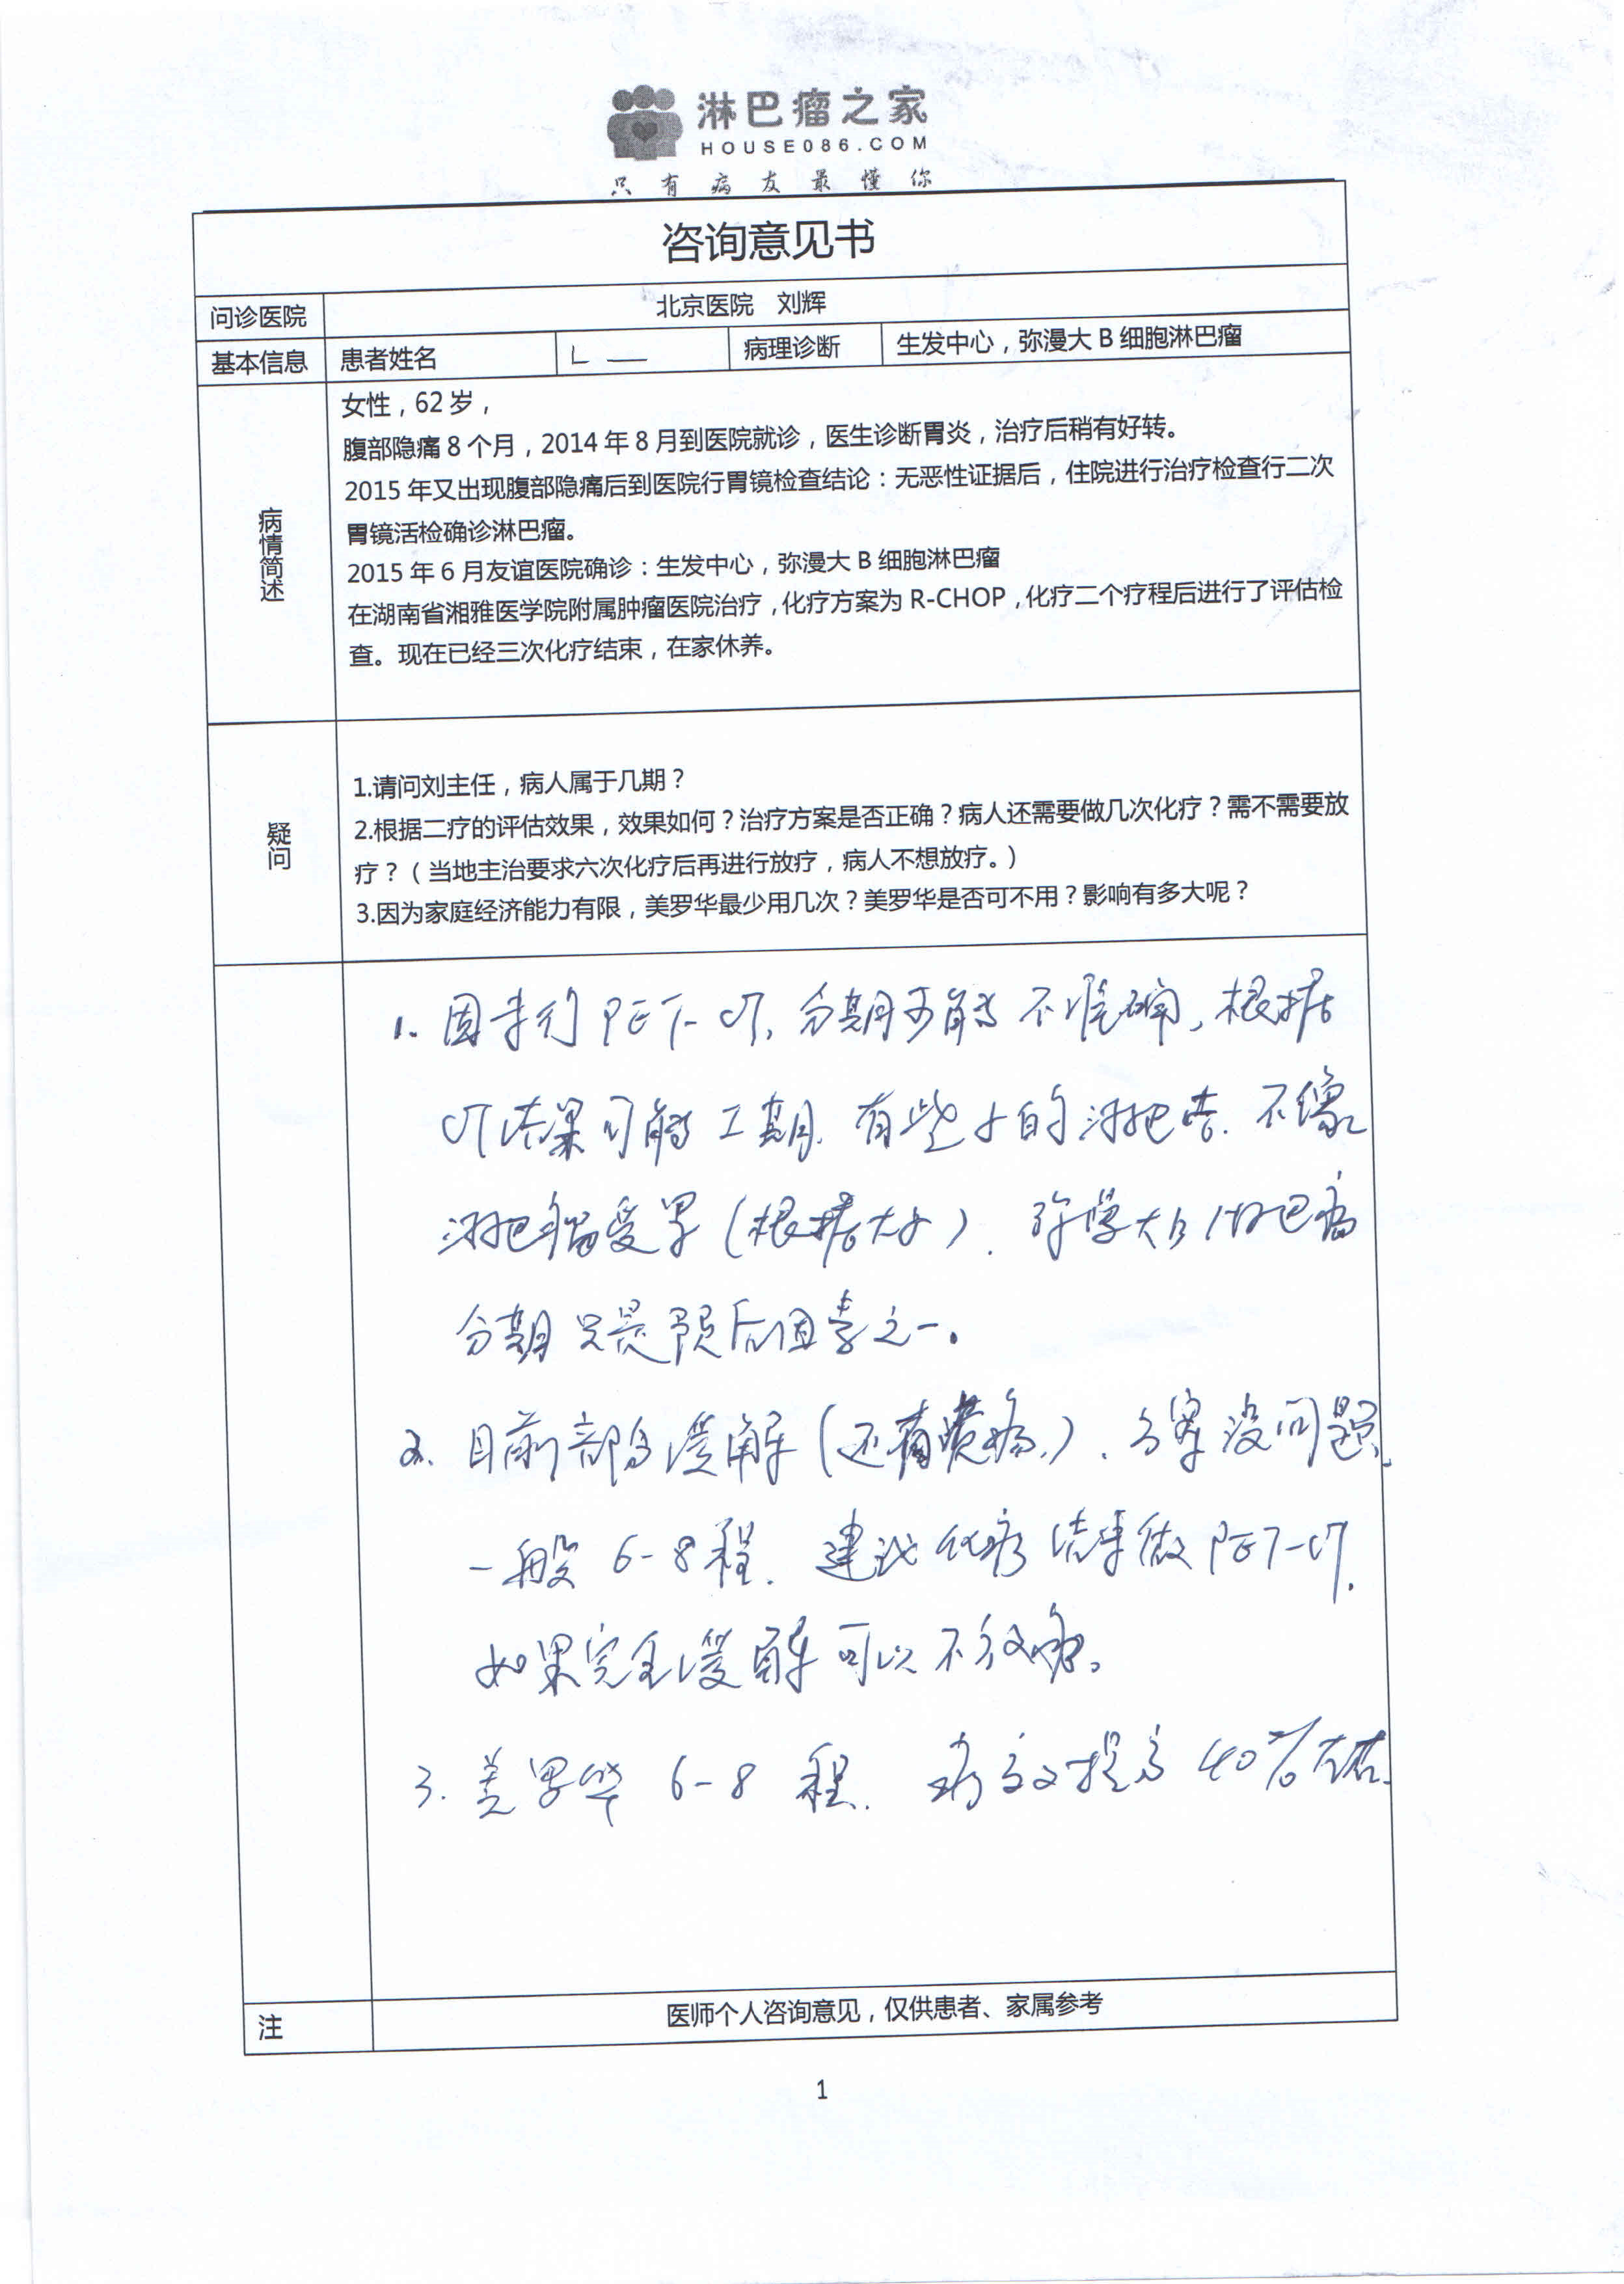 淋巴瘤之家
HOUSE086.COM
只有病友最懂你
咨询意见书
问诊医院 北京医院 刘辉
基本信息 患者姓名 L — 病理诊断 生发中心，弥漫大 B 细胞淋巴瘤
病情简述
女性，62 岁，
腹部隐痛 8 个月，2014 年 8 月到医院就诊，医生诊断胃炎，治疗后稍有好转。
2015 年又出现腹部隐痛后到医院行胃镜检查结论：无恶性证据后，住院进行治疗检查行二次
胃镜活检确诊淋巴瘤。
2015 年 6 月友谊医院确诊：生发中心，弥漫大 B 细胞淋巴瘤
在湖南省湘雅医学院附属肿瘤医院治疗，化疗方案为 R-CHOP，化疗二个疗程后进行了评估检
查。现在已经三次化疗结束，在家休养。
疑问
1.请问刘主任，病人属于几期？
2.根据二疗的评估效果，效果如何？治疗方案是否正确？病人还需要做几次化疗？需不需要放
疗？（当地主治要求六次化疗后再进行放疗，病人不想放疗。）
3.因为家庭经济能力有限，美罗华最少用几次？美罗华是否可不用？影响有多大呢？
1. 因未行 PET-CT, 分期可能不准确, 根据
CT结果可能 I 期. 有些小的淋巴结. 不像
淋巴瘤受累 (根据大小). 弥漫大B淋巴瘤
分期只是预后因素之一。
2. 目前部分缓解 (还有溃疡), 方案没问题,
一般 6-8 程. 建议化疗结束做 PET-CT.
如果完全缓解可以不放疗。
3. 美罗华 6-8 程. 疗效提高 40% 左右.
注 医师个人咨询意见，仅供患者、家属参考
1